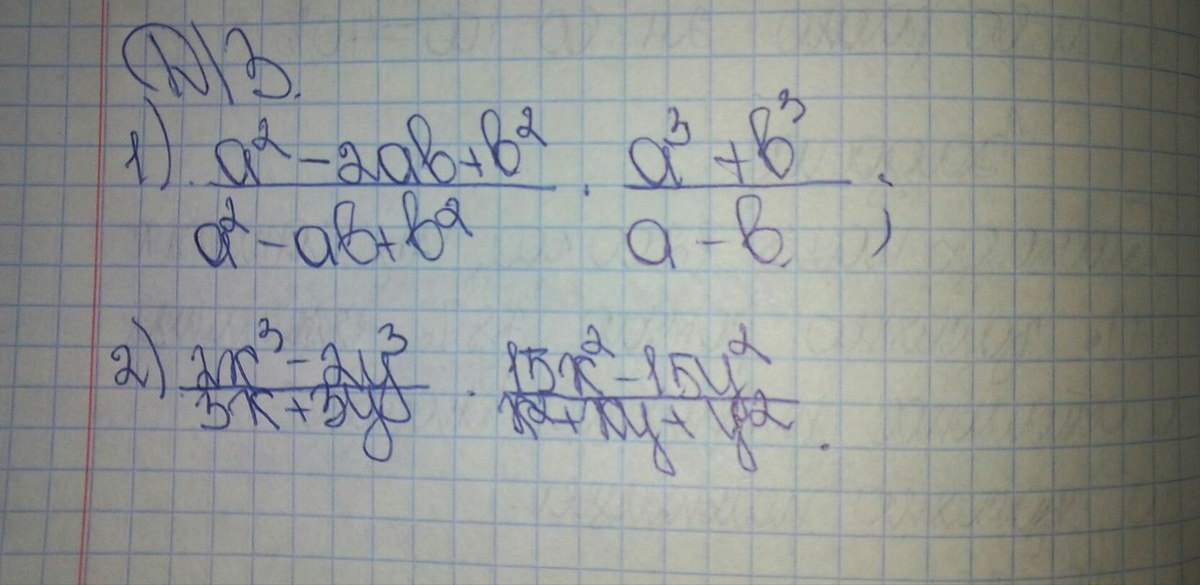 Д\З.
1) (a² - 2ab + b²)/(a² - ab + b²) · (a³ + b³)/(a - b) ;
2) (2x³ - 2y³)/(5x + 5y) · (15x² - 15y²)/(x² + xy + y²) .